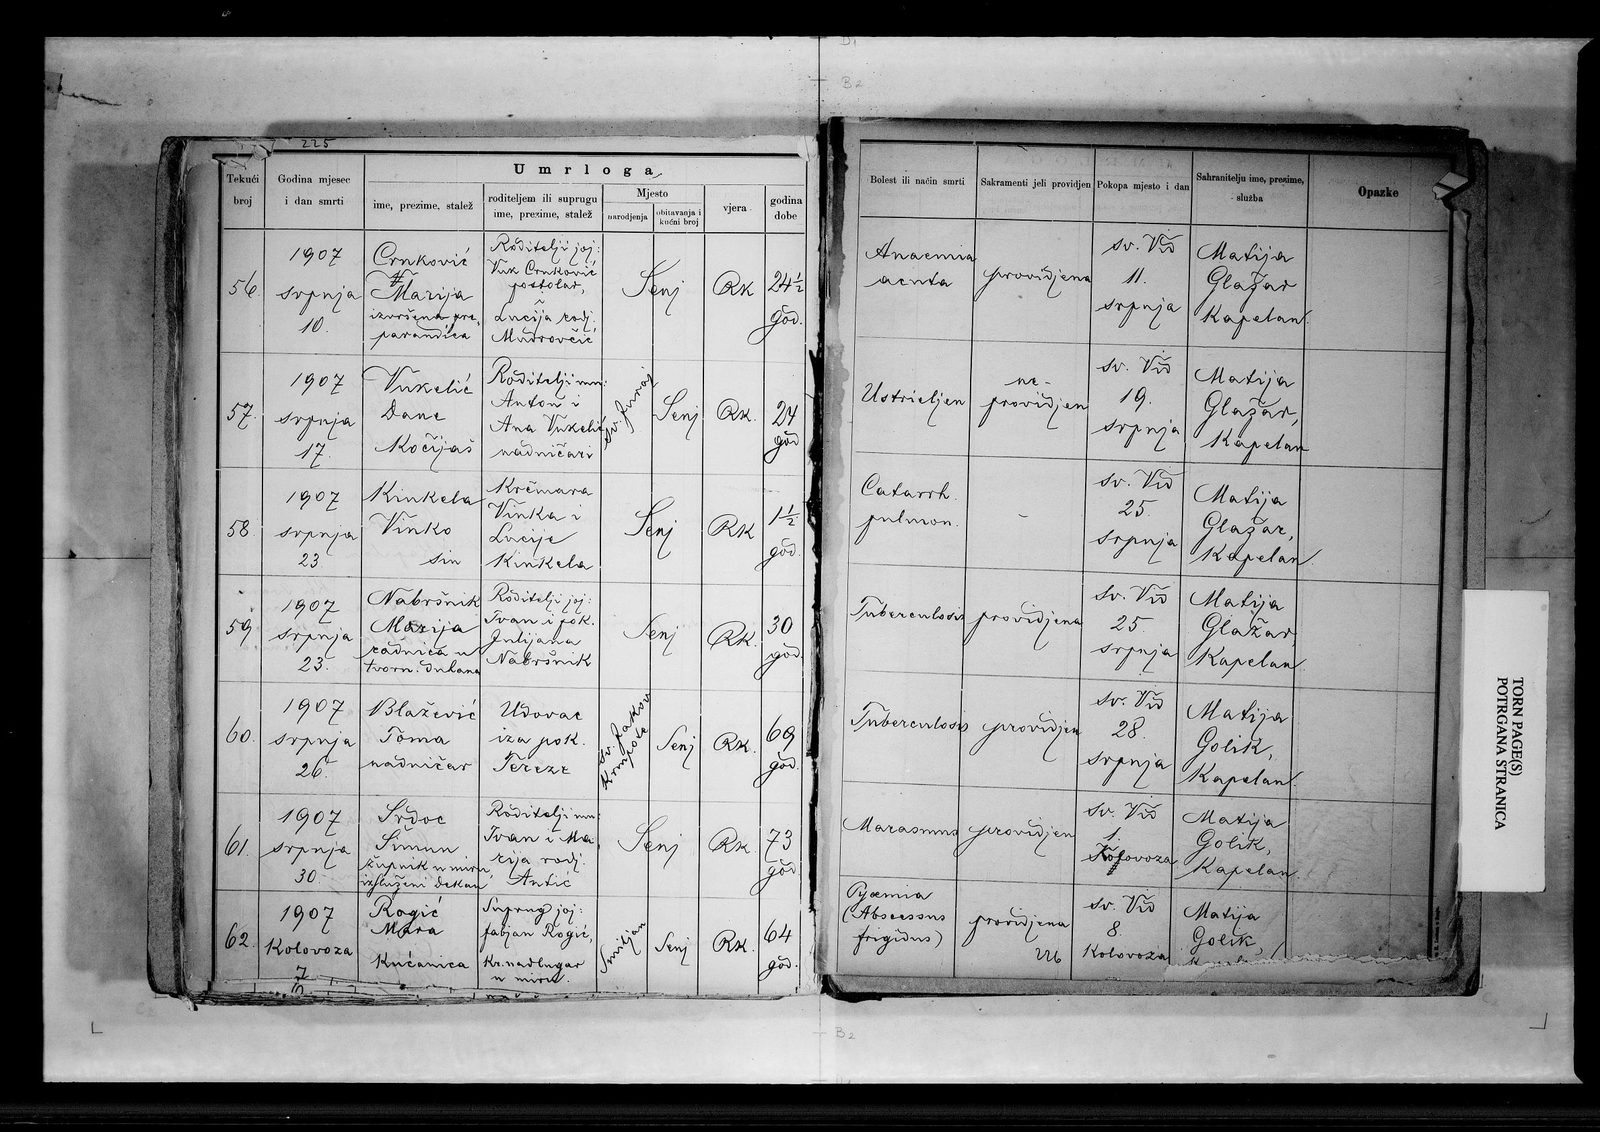 225
Umrloga
Tekući broj
Godina mjesec i dan smrti
ime, prezime, stalež
roditeljem ili suprugu ime, prezime, stalež
Mjesto
narodjenja
obitavanja i kućni broj
vjera
godina dobe
Bolest ili način smrti
Sakramenti jeli providjen
Pokopa mjesto i dan
Sahranitelju ime, prezime, služba
Opazke
56.
1907
srpnja
10.
Crnković
Marija
izvršena pre-
parandica
Roditelji joj:
Vuk Crnković
postolar,
Lucija rodj.
Mudrovčić
Senj
Rk
24½
god.
Anaemia
acuta
providjena
sv. Vid
11.
srpnja
Matija
Glažar
Kapelan.
57.
1907
srpnja
17.
Vukelić
Dane
Kočijaš
Roditelji mu:
Anton i
Ana Vukelić
nadničari
sv. Juraj
Senj
Rk.
24
god
Ustrieljen
ne-
providjen
sv. Vid
19.
srpnja
Matija
Glažar,
Kapelan
58.
1907
srpnja
23
Kinkela
Vinko
sin
Krčmara
Vinka i
Lucije
Kinkela
Senj
Rk
1½
god.
Catarrh.
pulmon.
-
sv. Vid
25.
srpnja
Matija
Glažar,
Kapelan
59.
1907
srpnja
23.
Nabršnik
Marija
radnica u
tvorn. duhana
Roditelji joj:
Ivan i pok.
Julijana
Nabršnik
Senj
Rk.
30
god.
Tuberculosis
providjena
sv. Vid
25.
srpnja
Matija
Glažar,
Kapelan.
60.
1907
srpnja
26.
Blažević
Toma
nadničar
Udovac
iza pok.
Tereze
sv. Jakov
Krmpote
Senj
Rk.
69
god.
Tuberculosis
providjen
sv. Vid
28.
srpnja
Matija
Golik,
Kapelan.
61.
1907
srpnja
30.
Srdoc
Šimun
župnik u miru,
izsluženi dekan
Roditelji mu:
Ivan i Ma
rija rodj.
Antić
Senj
Rk.
73
god.
Marasmus
providjen
sv. Vid
1.
Kolovoza
Matija
Golik,
Kapelan.
62.
1907
Kolovoza
7
Rogić
Mara
Kućanica
Suprug joj:
Fabjan Rogić,
Kr. nadlugar
u miru.
Smiljan
Senj
Rk.
64
god.
Pyæmia
(Abscessus
frigidus)
providjena
226
sv. Vid
8.
Kolovoza
Matija
Golik,
TORN PAGE(S)
POTRGANA STRANICA
B2
B2